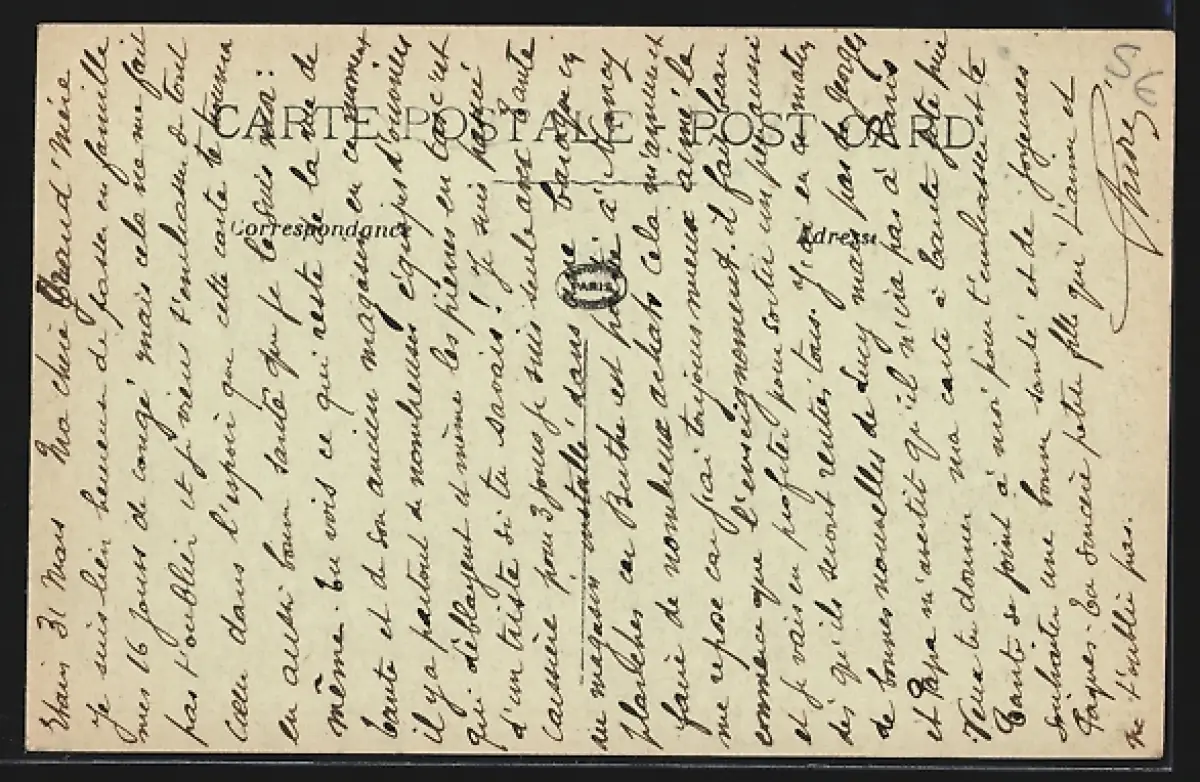 CARTE POSTALE - POST CARD
Correspondance
Adresse
PARIS
Etain 31 Mars Ma chère Grand'Mère
Je suis bien heureuse de passer en famille
mes 16 jours de congé mais cela ne me fait
pas t'oublier et je viens t'embrasser de tout
cœur dans l'espoir que cette carte te trouvera
en aussi bonne santé que je le suis moi
même. Tu vois ce qui reste de la rue de
tante et de son ancien magasin en ce moment
il y a partout de nombreuses équipes d'ouvriers
qui déblayent et même les pierres en tas c'est
d'un triste si tu savais! Je suis passé
caissière pour 3 jours je suis seule avec tante
au magasin installé dans une baraque en
planches car Berthe est partie à Nancy
faire de nombreux achats cela m'amuse et
me repose car j'ai toujours mieux aimé le
commerce que l'enseignement. il fait beau
et je vais en profiter pour sortir un peu aussi
dès qu'ils seront rentrés tous. J'ai eu ce matin
de bonnes nouvelles de Lucy mais pas de Georges
et Papa m'avertit qu'il n'ira pas à Paris
Veux tu donner ma carte à tante
Tante se joint à moi pour t'embrasser et te
souhaiter une bonne santé et de joyeuses
Pâques. Ta sincère petite fille qui t'aime et
ne t'oublie pas.